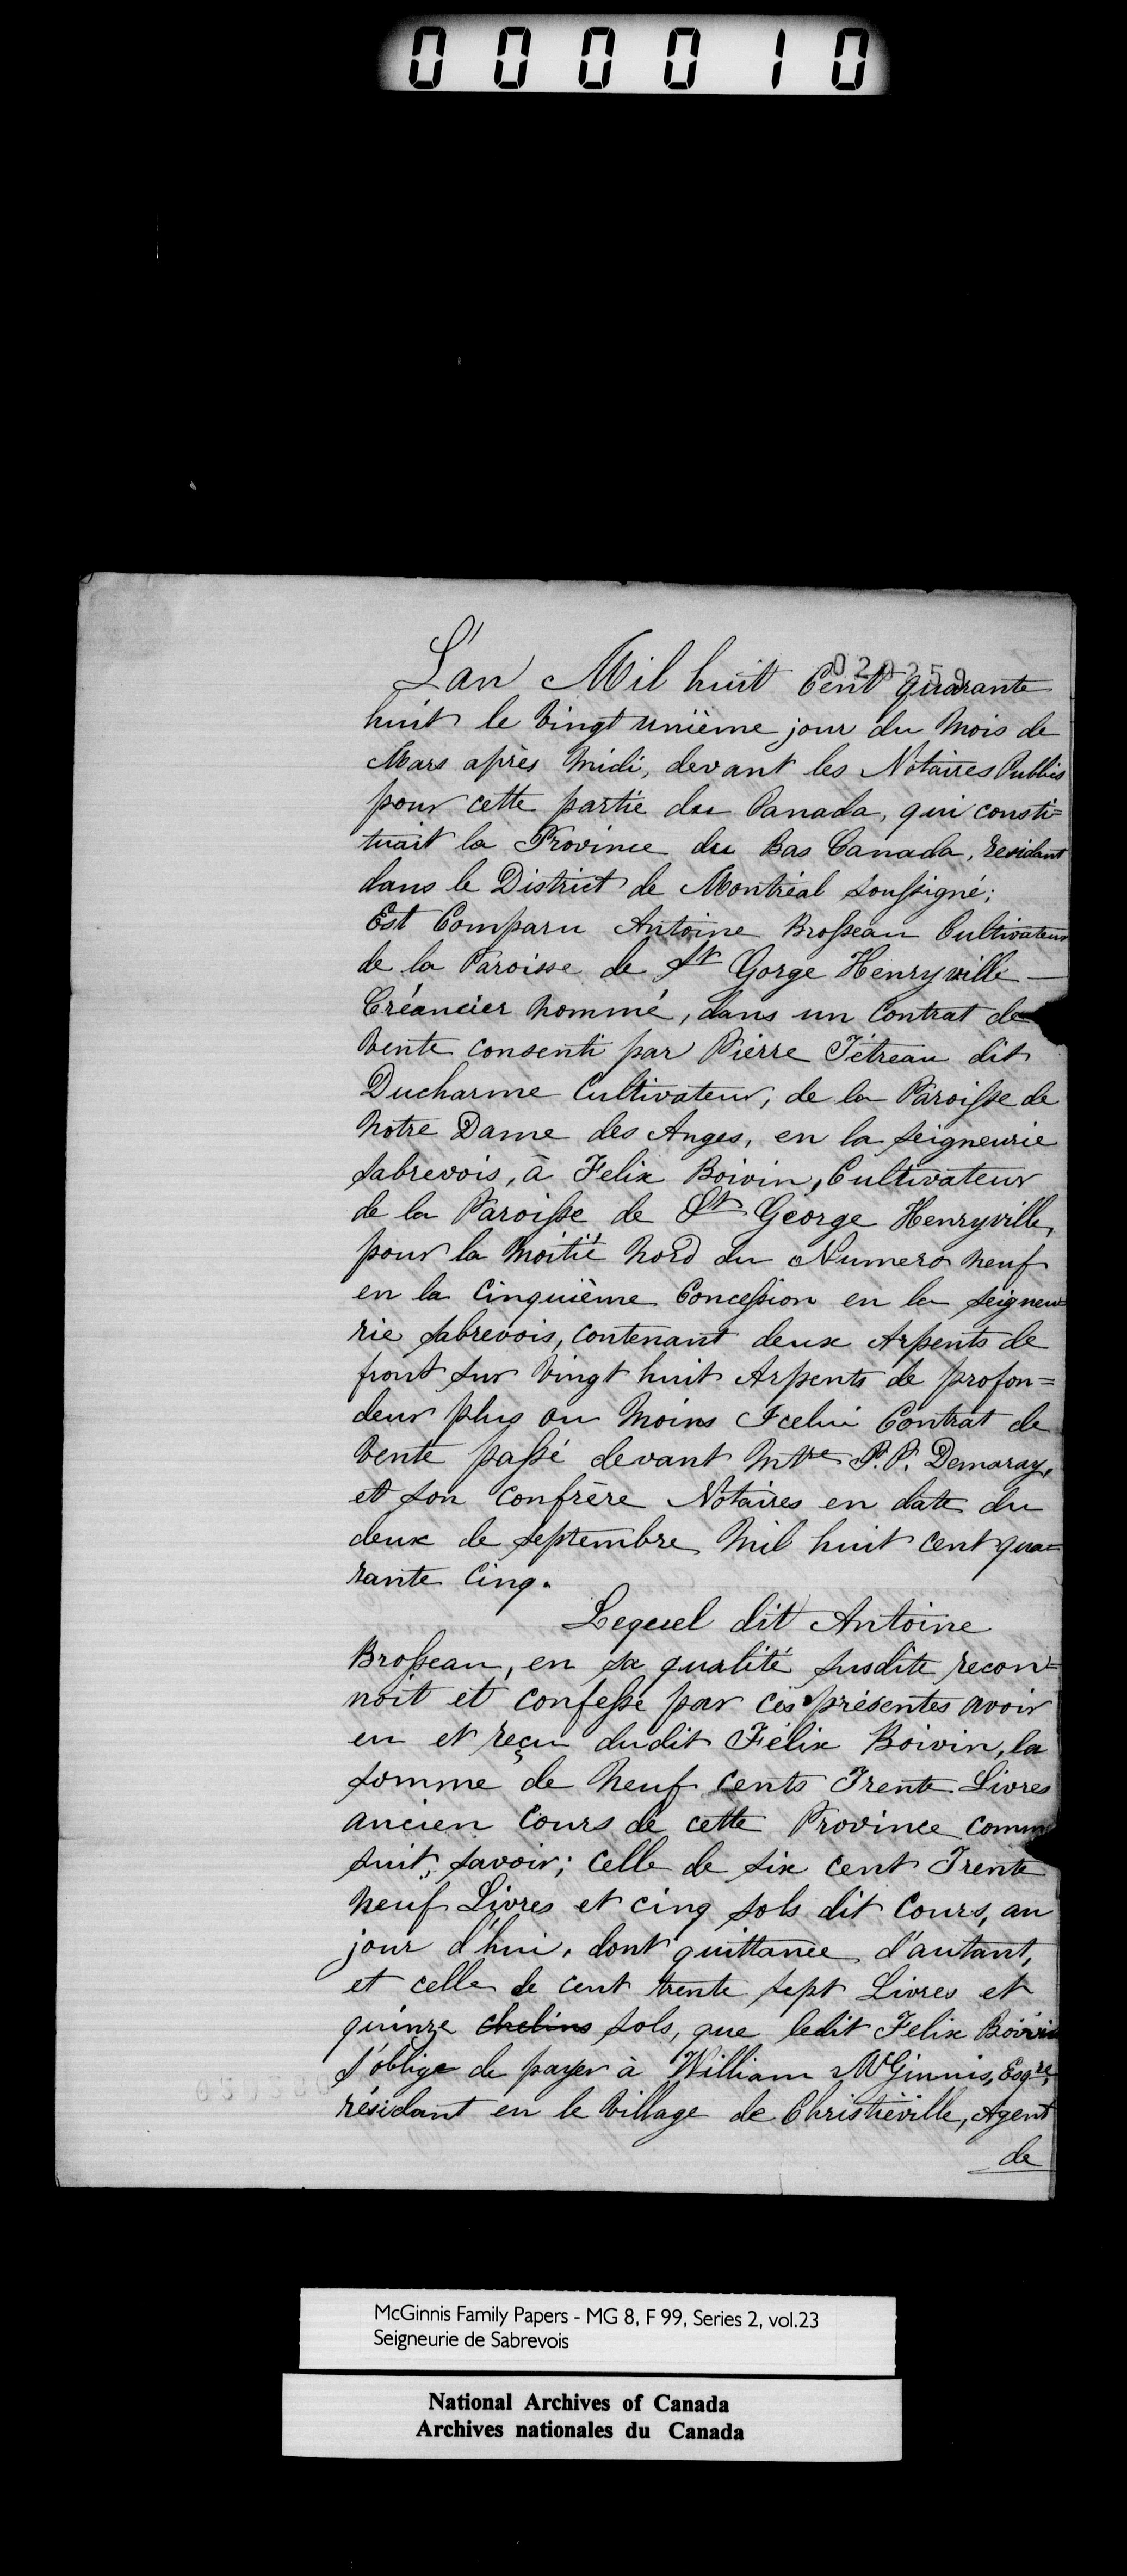 000010
020259
L'an Mil huit Cent quarante
huit le vingt unième jour du Mois de
Mars après Midi, devant les Notaires Publics
pour cette partie du Canada, qui consti=
tuait la Province du Bas Canada, residant
dans le District de Montréal soussigné;
Est Comparu Antoine Brosseau Cultivateur
de la Paroisse de St Gorge Henryville —
Créancier nommé, dans un Contrat de
Vente consenti par Pierre Tétreau dit
Ducharme Cultivateur, de la Paroisse de
Notre Dame des Anges, en la seigneurie
Sabrevois, à Felix Boivin, Cultivateur
de la Paroisse de St George Henryville,
pour la Moitié Nord du Numero neuf
en la Cinquième Concession en la seigneu=
rie Sabrevois, contenant deux Arpents de
front sur vingt huit Arpents de profon=
deur plus ou moins Icelui Contrat de
Vente passé devant Mtre P. P. Demaray,
et son confrère Notaires en date du
deux de septembre Mil huit cent qua=
rante cinq.
Lequel dit Antoine
Brosseau, en sa qualité susdite recon=
noit et confesse par ces présentes avoir
eu et reçu dudit Félix Boivin, la
somme de Neuf cents Trente Livres
ancien Cours de cette Province comm
suit, savoir; celle de six cent Trente
Neuf Livres et cinq sols dit Cours, au
jour d'hui, dont quittance d'autant,
et celle de cent trente sept Livres et
quinze chelins sols, que ledit Felix Boivin
s'oblige de payer à William McGinnis, Esqre,
résidant en le Village de Christieville, Agent
de
McGinnis Family Papers - MG 8, F 99, Series 2, vol.23
Seigneurie de Sabrevois
National Archives of Canada
Archives nationales du Canada